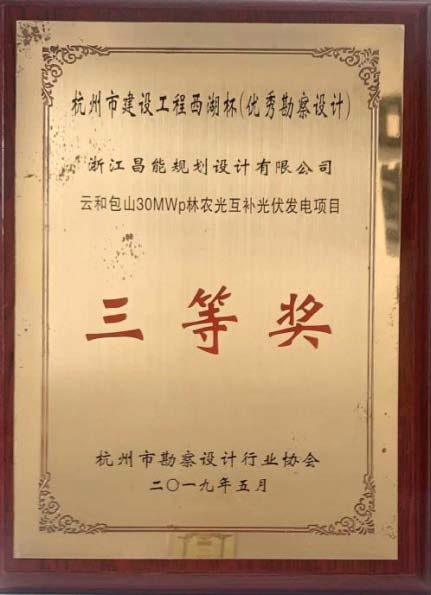 杭州市建设工程西湖杯(优秀勘察设计)
浙江昌能规划设计有限公司
云和包山30MWp林农光互补光伏发电项目
三等奖
杭州市勘察设计行业协会
二〇一九年五月